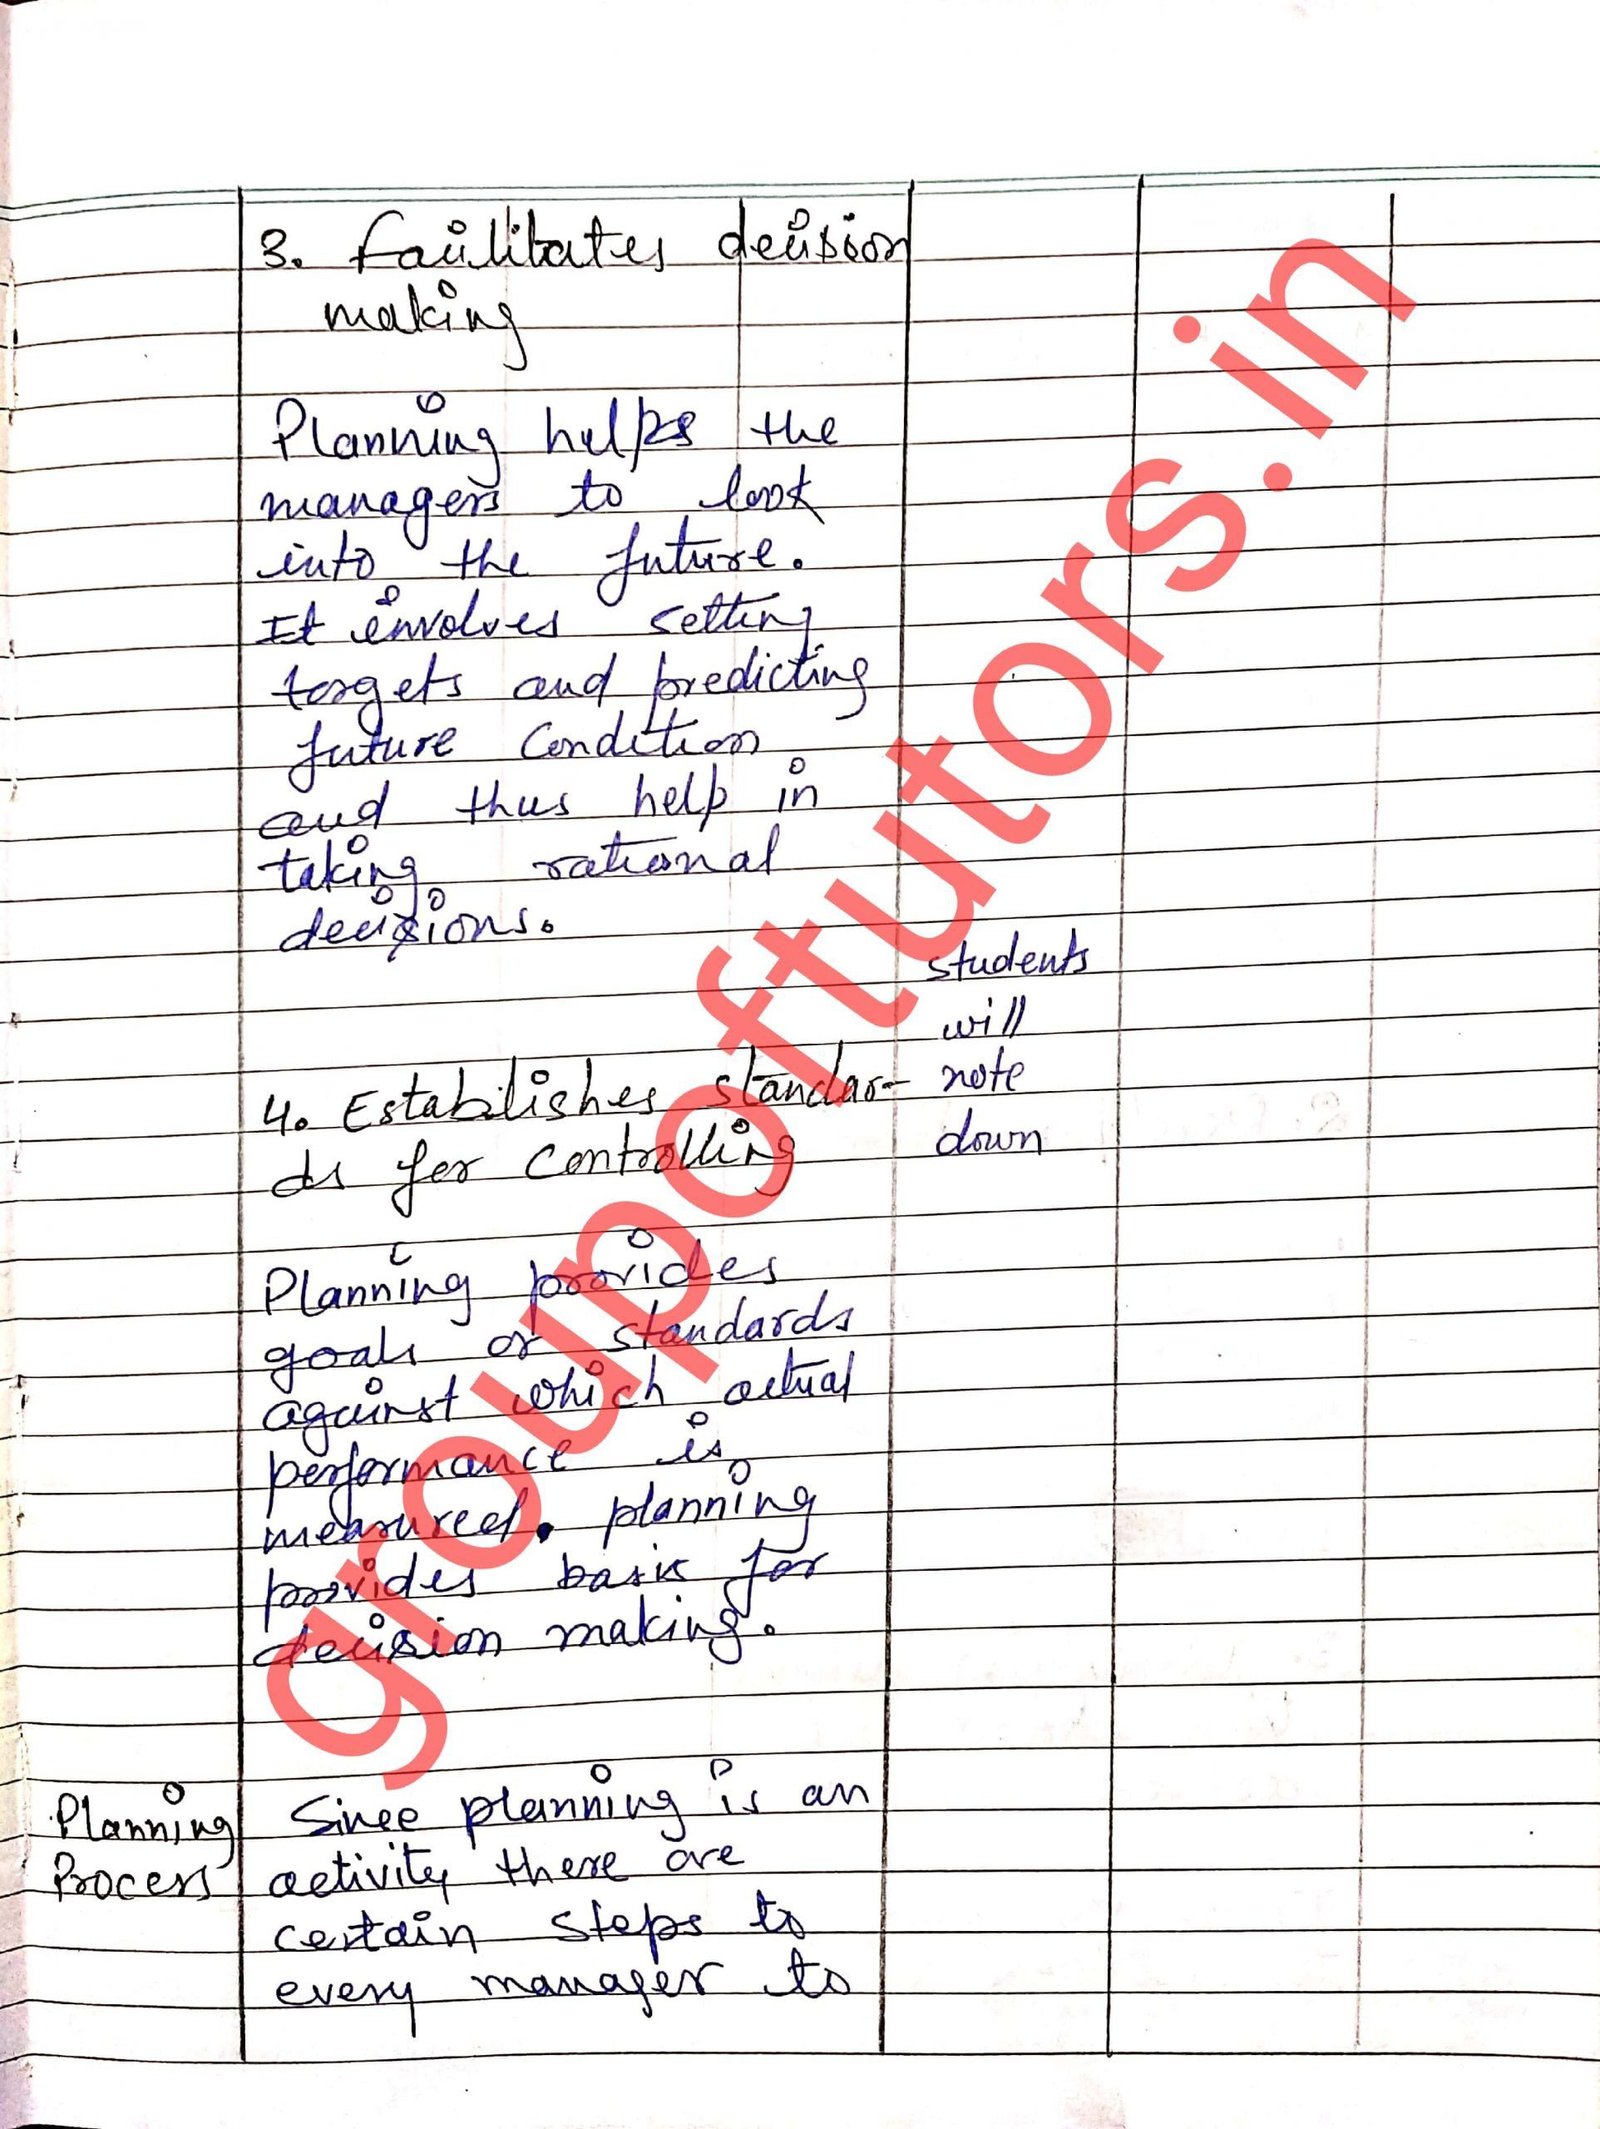 3. Facilitates decision
making
Planning helps the
managers to look
into the future.
It involves setting
targets and predicting
future Condition
and thus help in
taking rational
decisions.
students
will
note
down
4. Establishes standar-
ds for Controlling
Planning provides
goals or standards
against which actual
performance is
measured. planning
provides basis for
decision making.
Planning
Process
Since planning is an
activity there are
certain steps to
every manager to
groupoftutors.in